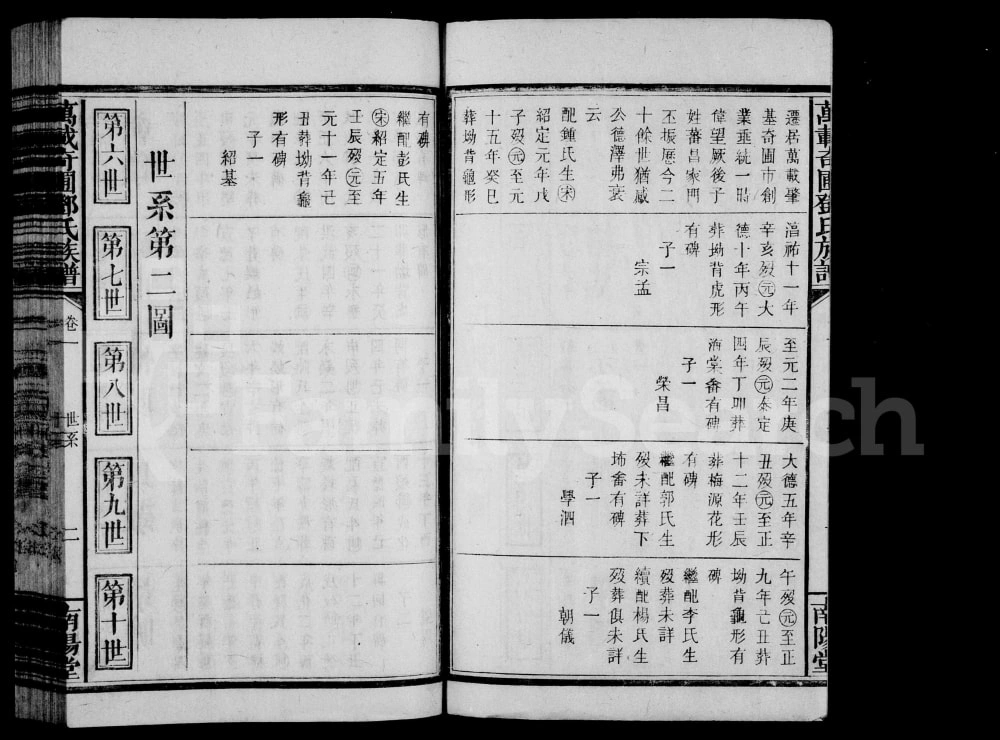 萬載奇圃鄧氏族譜
南陽堂
遷居萬載肇
基奇圃市創
業垂統一時
偉望厥後子
姓蕃昌家門
丕振歷今二
十餘世猶感
公德澤弗衰
云
配鍾氏生㊍宋
紹定元年戊
子歿元至元
十五年癸巳
葬坳背龜形
淳祐十一年
辛亥歿元大
德十年丙午
葬坳背虎形
有碑
子一
宗孟
至元二年庚
辰歿元泰定
四年丁卯葬
海棠畬有碑
子一
榮昌
大德五年辛
丑歿元至正
十二年壬辰
葬梅源花形
有碑
繼配郭氏生
歿未詳葬下
埠畬有碑
子一
學泗
午歿元至正
九年己丑葬
坳背龜形有
碑
繼配李氏生
歿葬未詳
續配楊氏生
歿葬俱未詳
子一
朝儀
有碑
繼配彭氏生
宋紹定五年
壬辰歿元至
元十一年己
丑葬坳背龜
形有碑
子一
紹基
世系第二圖
第六世
第七世
第八世
第九世
第十世
萬載奇圃鄧氏族譜
卷一
世系
二
南陽堂
FamilySearch